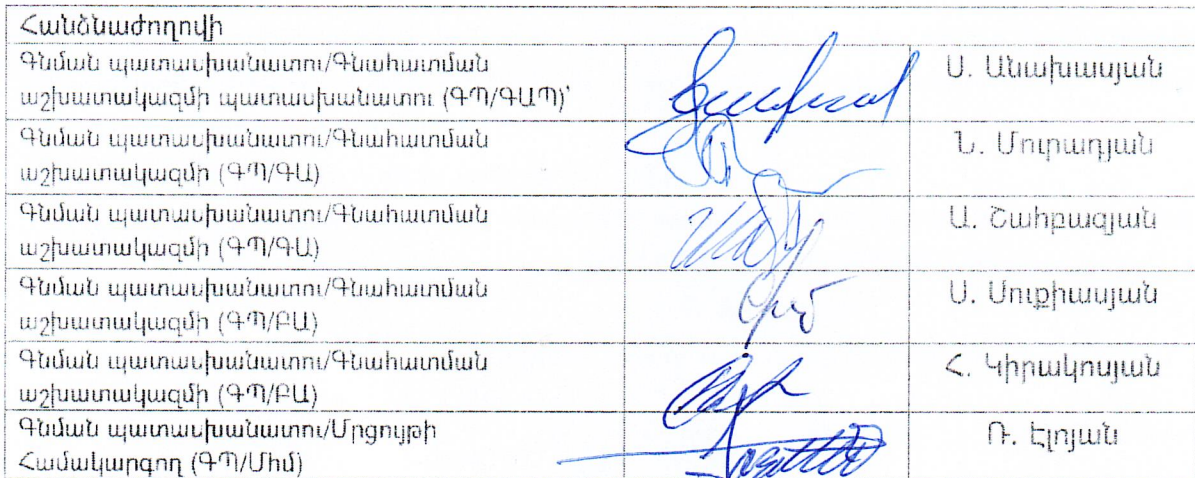 Հանձնաժողովի
Գնման պատասխանատու/Գնահատման
աշխատակազմի պատասխանատու (ԳՊ/ԳԱՊ)՝
Ս. Անախասյան
Գնման պատասխանատու/Գնահատման
աշխատակազմի (ԳՊ/ԳԱ)
Ն. Մուրադյան
Գնման պատասխանատու/Գնահատման
աշխատակազմի (ԳՊ/ԳԱ)
Ա. Շահբազյան
Գնման պատասխանատու/Գնահատման
աշխատակազմի (ԳՊ/ԲԱ)
Ս. Սուքիասյան
Գնման պատասխանատու/Գնահատման
աշխատակազմի (ԳՊ/ԲԱ)
Հ. Կիրակոսյան
Գնման պատասխանատու/Մրցույթի
Համակարգող (ԳՊ/Մհմ)
Ռ. Էլոյան